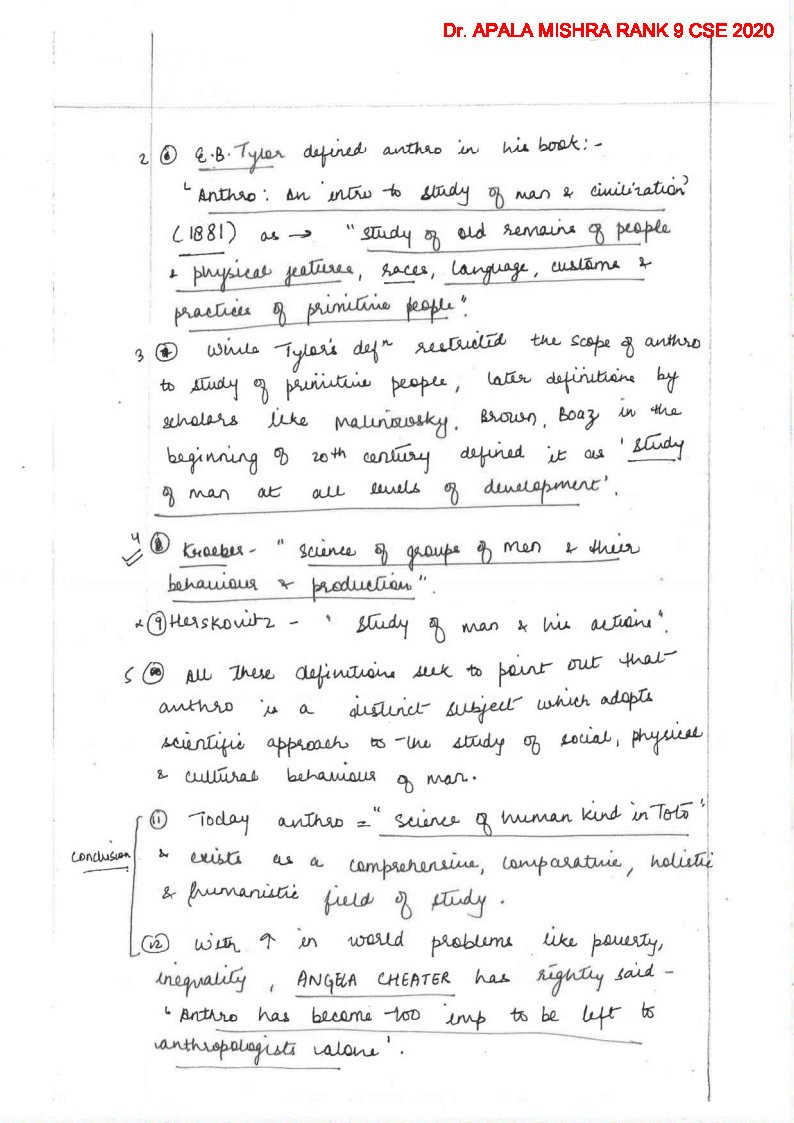 Dr. APALA MISHRA RANK 9 CSE 2020
2 ⑥ E.B. Tylor defined anthro in his book:-
'Anthro: An intro to study of man & civilization'
(1881) as → "study of old remains of people
& physical features, races, language, customs &
practices of primitive people".
3 While Tylor's defⁿ restricted the scope of anthro
to study of primitive people, later definitions by
scholars like Malinowsky, Brown, Boaz in the
beginning of 20th century defined it as 'study
of man at all levels of development'.
4 ⑧ Kroeber - "science of groups of men & their
behaviour & production".
⑨ Herskovitz - 'study of man & his actions'.
5 ⑩ All these definitions seek to point out that
anthro is a distinct subject which adopts
scientific approach to the study of social, physical
& cultural behaviour of man.
⑪ Today anthro = "science of human kind in Toto"
Conclusion & exists as a comprehensive, comparative, holistic
& humanistic field of study.
⑫ With ↑ in world problems like poverty,
inequality, ANGELA CHEATER has rightly said -
'Anthro has become too imp to be left to
anthropologists alone'.